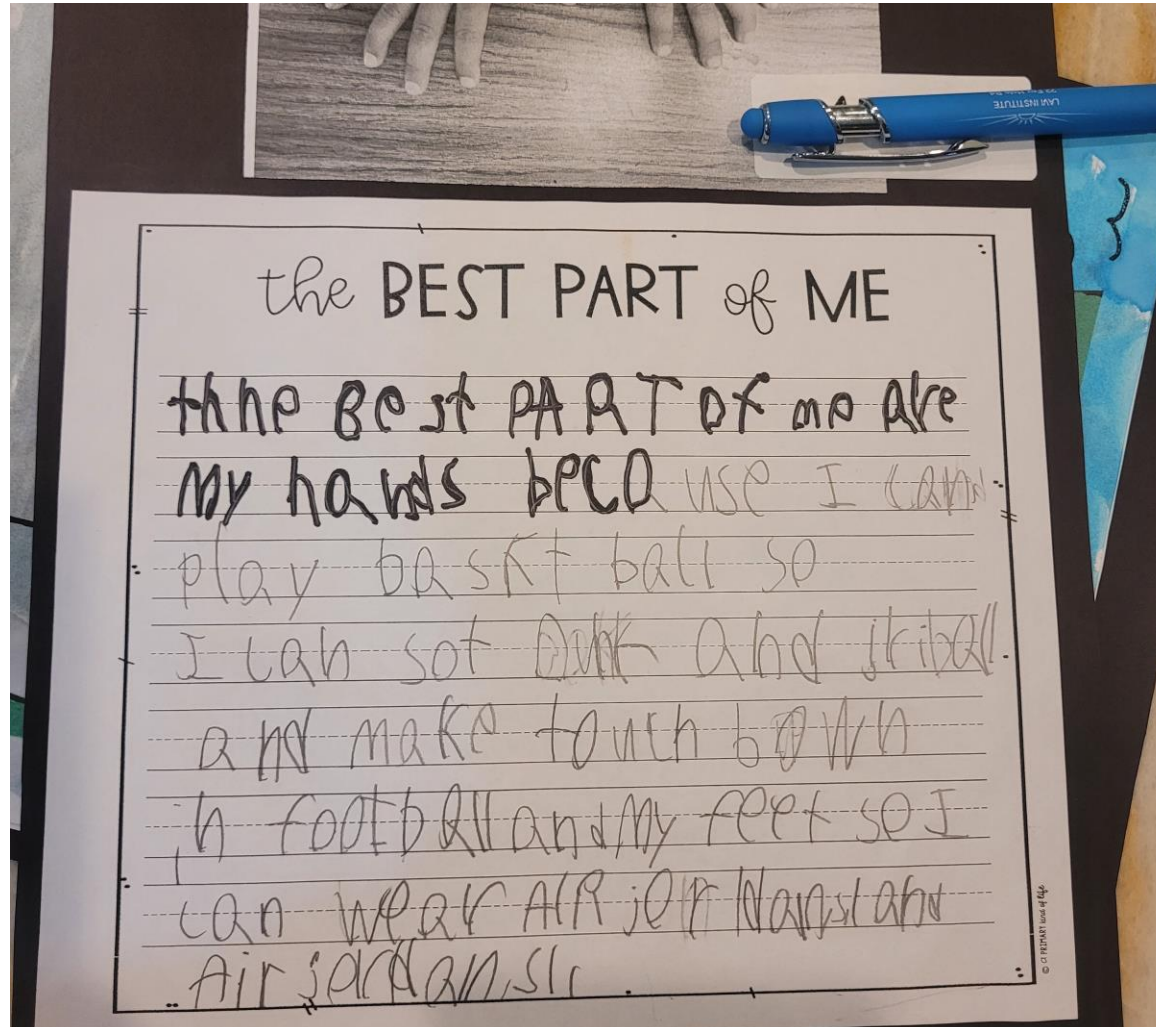 LAVI INSTITUTE
the BEST PART of ME
thhe Best PART Of me Are
My hands beca use I can
play baskt ball so
I can sot Dunk and
and make touch bown
in football and My feet so I
can wear AIR and
Air jordans
© CI PRIMARY kind of life